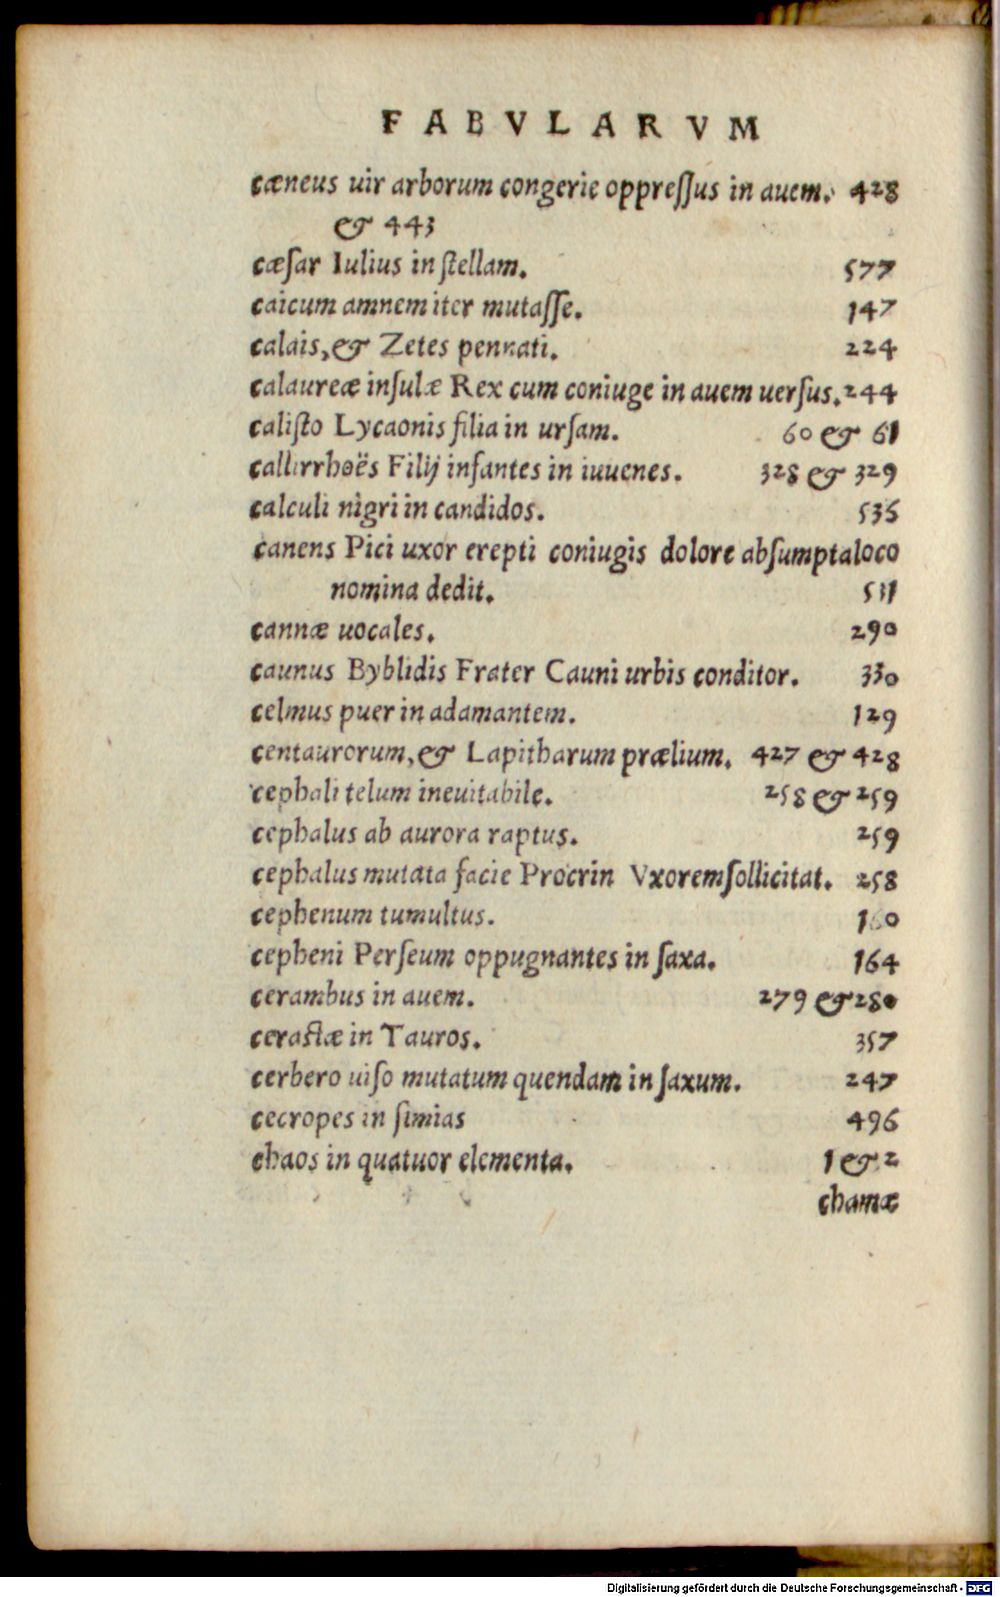 FABVLARVM
cæneus uir arborum congerie oppreſſus in auem. 428
& 443
cæſar Iulius in ſtellam. 577
caicum amnem iter mutaſſe. 147
calais, & Zetes pennati. 224
calaureæ inſulæ Rex cum coniuge in auem uerſus. 244
caliſto Lycaonis filia in urſam. 60 & 61
callirrhoës Filij infantes in iuuenes. 328 & 329
calculi nigri in candidos. 536
canens Pici uxor erepti coniugis dolore abſumpta loco
nomina dedit. 531
cannæ uocales. 290
caunus Byblidis Frater Cauni urbis conditor. 330
celmus puer in adamantem. 129
centaurorum, & Lapitharum prælium. 427 & 428
cephali telum ineuitabile. 258 & 259
cephalus ab aurora raptus. 259
cephalus mutata facie Procrin Vxorem ſollicitat. 258
cephenum tumultus. 160
cepheni Perſeum oppugnantes in ſaxa. 164
cerambus in auem. 279 & 280
ceraſtæ in Tauros. 357
cerbero uiſo mutatum quendam in ſaxum. 247
cecropes in ſimias 496
chaos in quatuor elementa. 1 & 2
chamæ
Digitalisierung gefördert durch die Deutsche Forschungsgemeinschaft - DFG